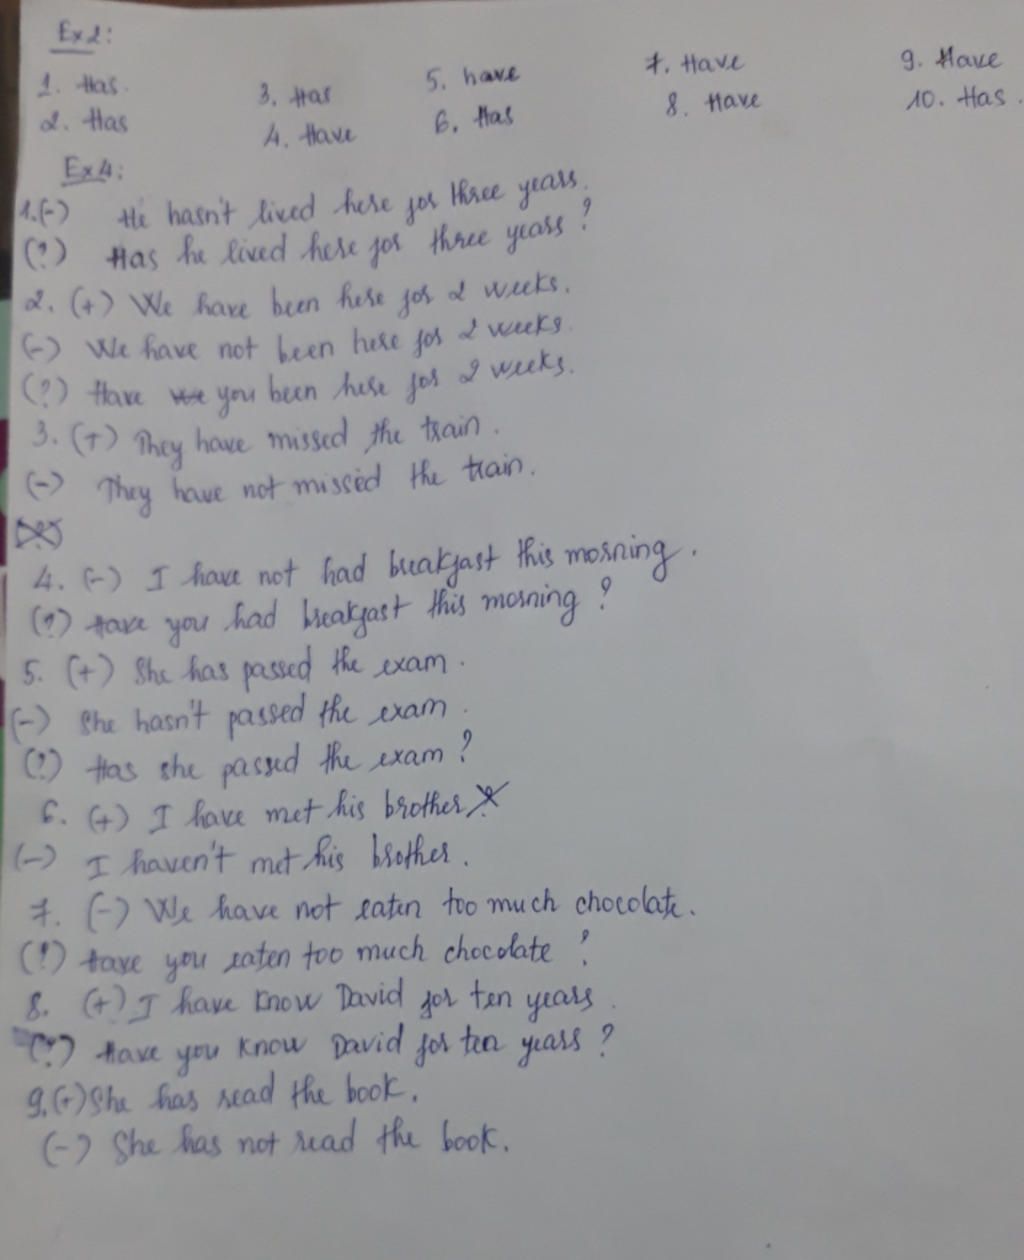 Ex2:
1. Has. 3. Has 5. have 7. Have 9. Have
2. Has 4. Have 6. Has 8. Have 10. Has.
Ex4:
1.(-) He hasn't lived here for three years.
(?) Has he lived here for three years?
2. (+) We have been here for 2 weeks.
(-) We have not been here for 2 weeks.
(?) Have you been here for 2 weeks.
3. (+) They have missed the train.
(-) They have not missed the train.
4. (-) I have not had breakfast this morning.
(?) Have you had breakfast this morning?
5. (+) She has passed the exam.
(-) She hasn't passed the exam.
(?) Has she passed the exam?
6. (+) I have met his brother
(-) I haven't met his brother.
7. (-) We have not eaten too much chocolate.
(?) Have you eaten too much chocolate?
8. (+) I have know David for ten years.
(?) Have you know David for ten years?
9.(+) She has read the book.
(-) She has not read the book.